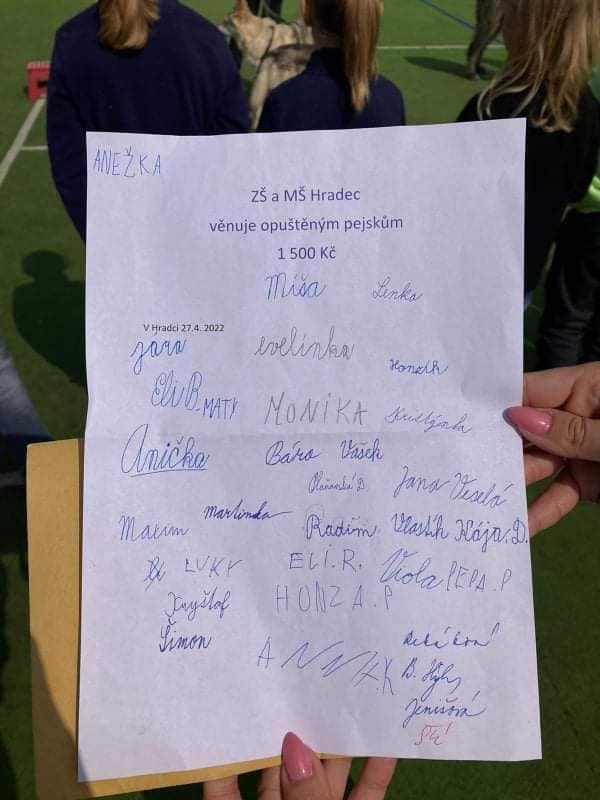 ANEŽKA
ZŠ a MŠ Hradec
věnuje opuštěným pejskům
1 500 Kč
Míša Lenka
V Hradci 27.4. 2022
Jára evelínka Honzík
Eli B. MATY MONIKA Kristýnka
Anička Bára Vašek
Jana Veselá
Maxim Martinka Radim Vlastík Kája.D.
LUKY ELI.R. Viola PEPA.P
Kryštof HONZA.P
Šimon
B.
Jenišová